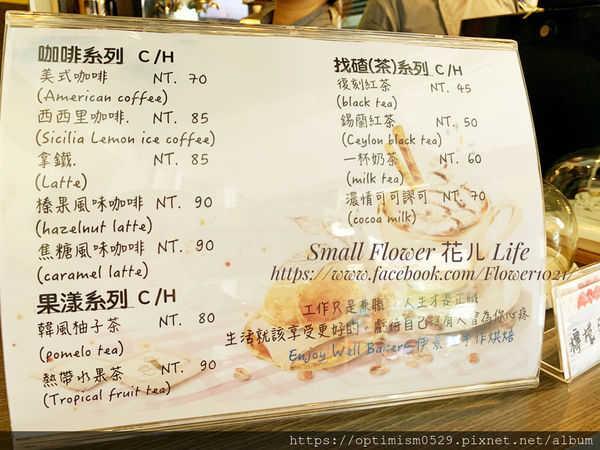 咖啡系列 C/H
美式咖啡 NT. 70
(American coffee)
西西里咖啡. NT. 85
(Sicilia Lemon ice coffee)
拿鐵. NT. 85
(Latte)
榛果風味咖啡 NT. 90
(hazelnut latte)
焦糖風味咖啡 NT. 90
(caramel latte)
果漾系列 C/H
韓風柚子茶 NT. 80
(pomelo tea)
熱帶水果茶 NT. 90
(Tropical fruit tea)
找碴(茶)系列 C/H
復刻紅茶 NT. 45
(black tea)
錫蘭紅茶 NT. 50
(Ceylon black tea)
一杯奶茶 NT. 60
(milk tea)
濃情可可謬可 NT. 70
(cocoa milk)
Small Flower 花ㄦ Life
https://www.facebook.com/Flower1021/
工作只是兼職，人生才是正職
生活就該享受更好的，虧待自己沒有人會為你心疼
Enjoy Well Bakers 伊景 手作烘焙
檸檬
https://optimism0529.pixnet.net/album